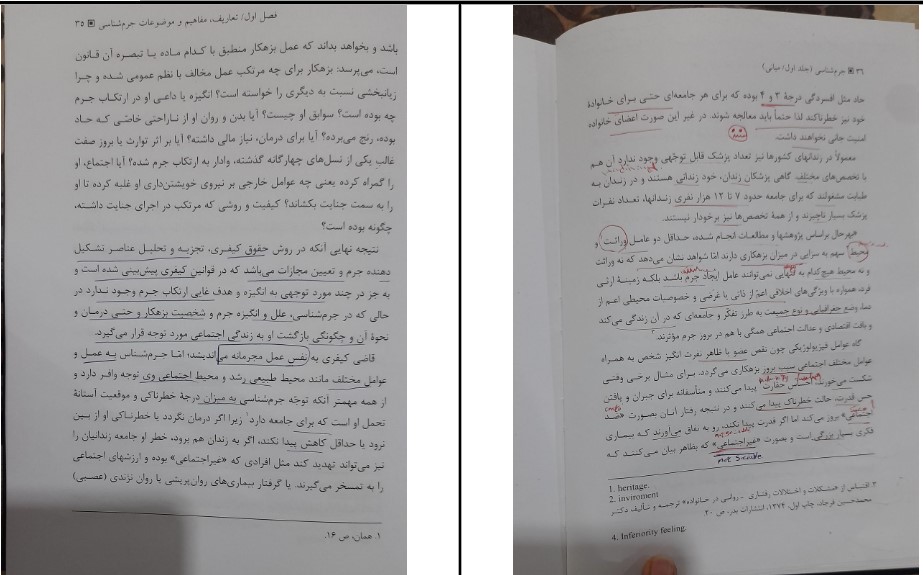 فصل اول/ تعاریف، مفاهیم و موضوعات جرم‌شناسی ۳۵
باشد و بخواهد بداند که عمل بزهکار منطبق با کدام ماده یا تبصره آن قانون
است، می‌پرسد: بزهکار برای چه مرتکب عمل مخالف با نظم عمومی شده و چرا
زیانبخشی نسبت به دیگری را خواسته است؟ انگیزه یا داعی او در ارتکاب جرم
چه بوده است؟ سوابق او چیست؟ آیا بدن و روان او از ناراحتی خاصی که حاد
بوده، رنج می‌برده؟ آیا برای درمان، نیاز مالی داشته؟ آیا بر اثر توارث یا بروز صفت
غالب یکی از نسل‌های چهارگانه گذشته، وادار به ارتکاب جرم شده؟ آیا اجتماع، او
را گمراه کرده یعنی چه عوامل خارجی بر نیروی خویشتن‌داری او غلبه کرده تا او
را به سمت جنایت بکشاند؟ کیفیت و روشی که مرتکب در اجرای جنایت داشته،
چگونه بوده است؟
نتیجه نهایی آنکه در روش حقوق کیفری، تجزیه و تحلیل عناصر تشکیل
دهنده جرم و تعیین مجازات می‌باشد که در قوانین کیفری پیش‌بینی شده است و
به جز در چند مورد توجهی به انگیزه و هدف غایی ارتکاب جرم وجود ندارد در
حالی که در جرم‌شناسی، علل و انگیزه جرم و شخصیت بزهکار و حتی درمان و
نحوة آن و چگونگی بازگشت او به زندگی اجتماعی مورد توجه قرار می‌گیرد.
قاضی کیفری به نفس عمل مجرمانه می‌اندیشد؛ امّا جرم‌شناس به عمل و
عوامل مختلف مانند محیط طبیعی رشد و محیط اجتماعی وی توجه وافر دارد و
از همه مهمتر آنکه توجّه جرم‌شناسی به میزان درجة خطرناکی و موقعیت آستانة
تحمل او است که برای جامعه دارد زیرا اگر درمان نگردد یا خطرناکی او از بین
نرود یا حداقل کاهش پیدا نکند، اگر به زندان هم برود، خطر او جامعه زندانیان را
نیز می‌تواند تهدید کند مثل افرادی که «غیراجتماعی» بوده و ارزشهای اجتماعی
را به تمسخر می‌گیرند. یا گرفتار بیماری‌های روان‌پریشی یا روان نژندی (عصبی)
۱. همان، ص ۱۶.
۳۶ جرم‌شناسی (جلد اول/ مبانی)
حاد مثل افسردگی درجة ۳ و ۴ بوده که برای هر جامعه‌ای حتی برای خانوادة
خود نیز خطرناکند لذا حتماً باید معالجه شوند. در غیر این صورت اعضای خانواده
امنیت جانی نخواهند داشت.
معمولاً در زندانهای کشورها نیز تعداد پزشک قابل توجّهی وجود ندارد آن هم
با تخصص‌های مختلف گاهی پزشکان زندان، خود زندانی هستند و در زندان به
طبابت مشغولند که برای جامعه حدود ۷ تا ۱۲ هزار نفری زندانها، تعداد نفرات
پزشک بسیار ناچیزند و از همة تخصص‌ها نیز برخودار نیستند.
بهرحال براساس پژوهشها و مطالعات انجام شده، حداقل دو عامل وراثت و
محیط سهم به سزایی در میزان بزهکاری دارند امّا شواهد نشان می‌دهد که نه وراثت
و نه محیط هیچ‌کدام به تنهایی نمی‌توانند عامل ایجاد جرم باشد بلکه زمینة ارثی
فرد، همواره با ویژگی‌های اخلاقی اعمّ از ذاتی یا عرضی و خصوصیات محیطی اعم از
وضع جغرافیایی و نوع جمعیت به طرز تفکر و جامعه‌ای که در آن زندگی می‌کند
و بافت اقتصادی و عدالت اجتماعی همگی با هم در بروز جرم مؤثرند.
گاه عوامل فیزیولوژیکی چون نقص عضو یا ظاهر نفرت انگیز شخص به همراه
عوامل مختلف اجتماعی سبب بروز بزهکاری می‌گردد. برای مثال برخی وقتی
شکست می‌خورند، احساس حقارت پیدا می‌کنند و متأسفانه برای جبران و یافتن
حس قدرت، حالت خطرناک پیدا می‌کنند و در نتیجه رفتار آنان بصورت «ضد
اجتماعی» بروز می‌کند اما اگر قدرت پیدا نکند، رو به نفاق می‌آورند که بیماری
فکری بسیار بزرگی است و بصورت «غیراجتماعی» که بظاهر بیان می‌کنند که
1. heritage.
2. inviroment
۳. اقتباس از «مشکلات و اختلالات رفتاری ـ روانی در خانواده» ترجمه و تألیف دکتر
محمدحسین فرجاد، چاپ اول، ۱۳۷۴، انتشارات بدر، ص ۲۰.
4. Inferiority feeling.